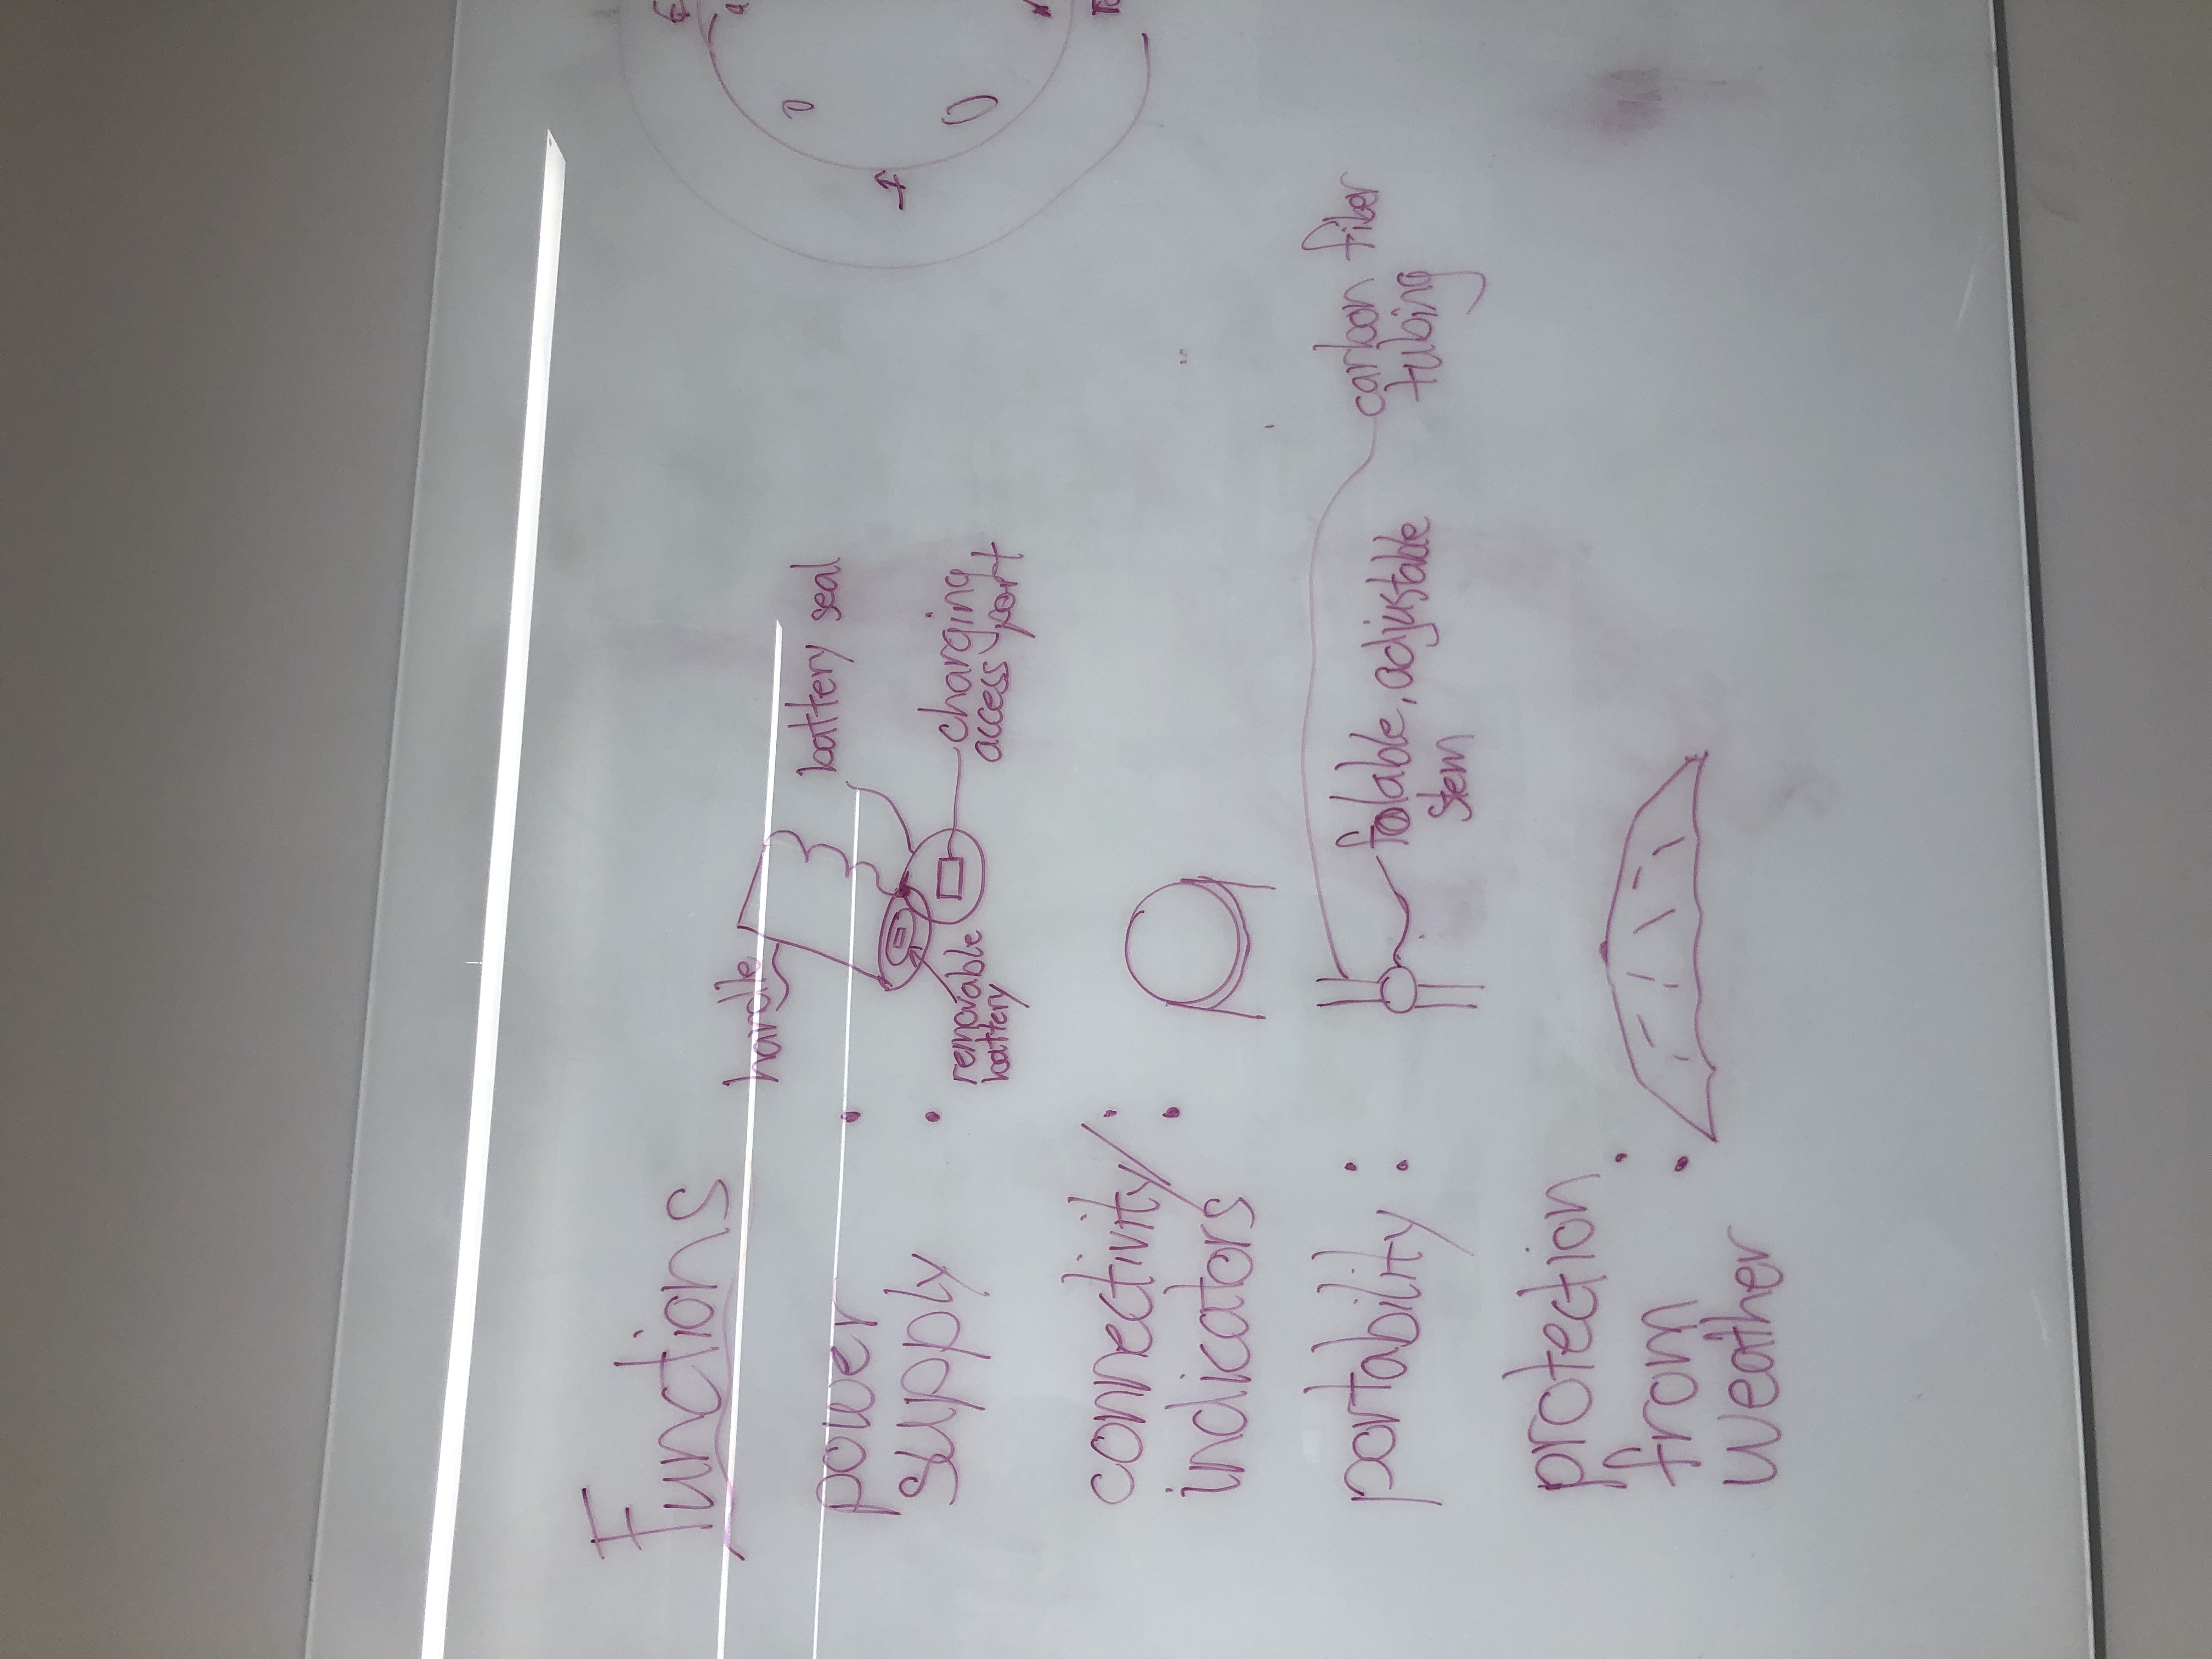 Functions
handle
power
supply :
battery seal
removable
battery
charging
access port
connectivity/
indicators :
portability :
folable, adjustable
stem
carbon fiber
tubing
protection
from
weather :